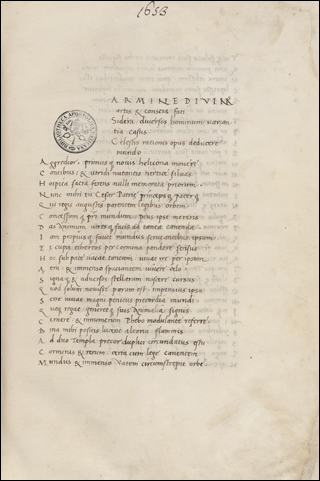 1653
ARMINE DIVINAS
artis & conscia fati
Sidera diuersos hominum uarian
tia casus
Celestis rationis opus deducere
mundo
BIBLIOTHECA APOSTOLICA
Aggredior primus q nouis helicona mouere
Cantibus & uiridi nutantes uertice siluas
Hospita sacra ferens nulli memorata priorum
Nunc mihi tu Cesar Patrie princeps q pater q
Qui regis augustis parentem legibus orbem
Concessum q patri mundum Deus ipse mereris
Das animum uires q facis ad tanta canenda
Iam propius q fauet mundus scrutantibus ipsum
Et cupit etherios per carmina pandere sensus
Hoc sub pace uacat tantum iuuat ire per ipsum
Aera & immenso spatiantem uiuere celo
Signa q & aduersos stellarum noscere cursus
Quod solum nouisse parum est impensius ipsa
Scire iuuat magni penitus precordia mundi
Quaq regat generet q suis animalia signis
Cernere & innumerum Phebo modulante referre
Bina mihi positis lucent altaria flammis
Ad duo templa precor duplici circundatus estu
Carminis & rerum certa cum lege canentem
Mundus & immenso uatem circumstrepit orbe